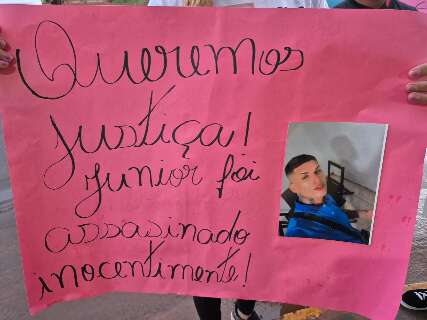 Queremos
justiça!
Junior foi
assasinado
inocentimente!